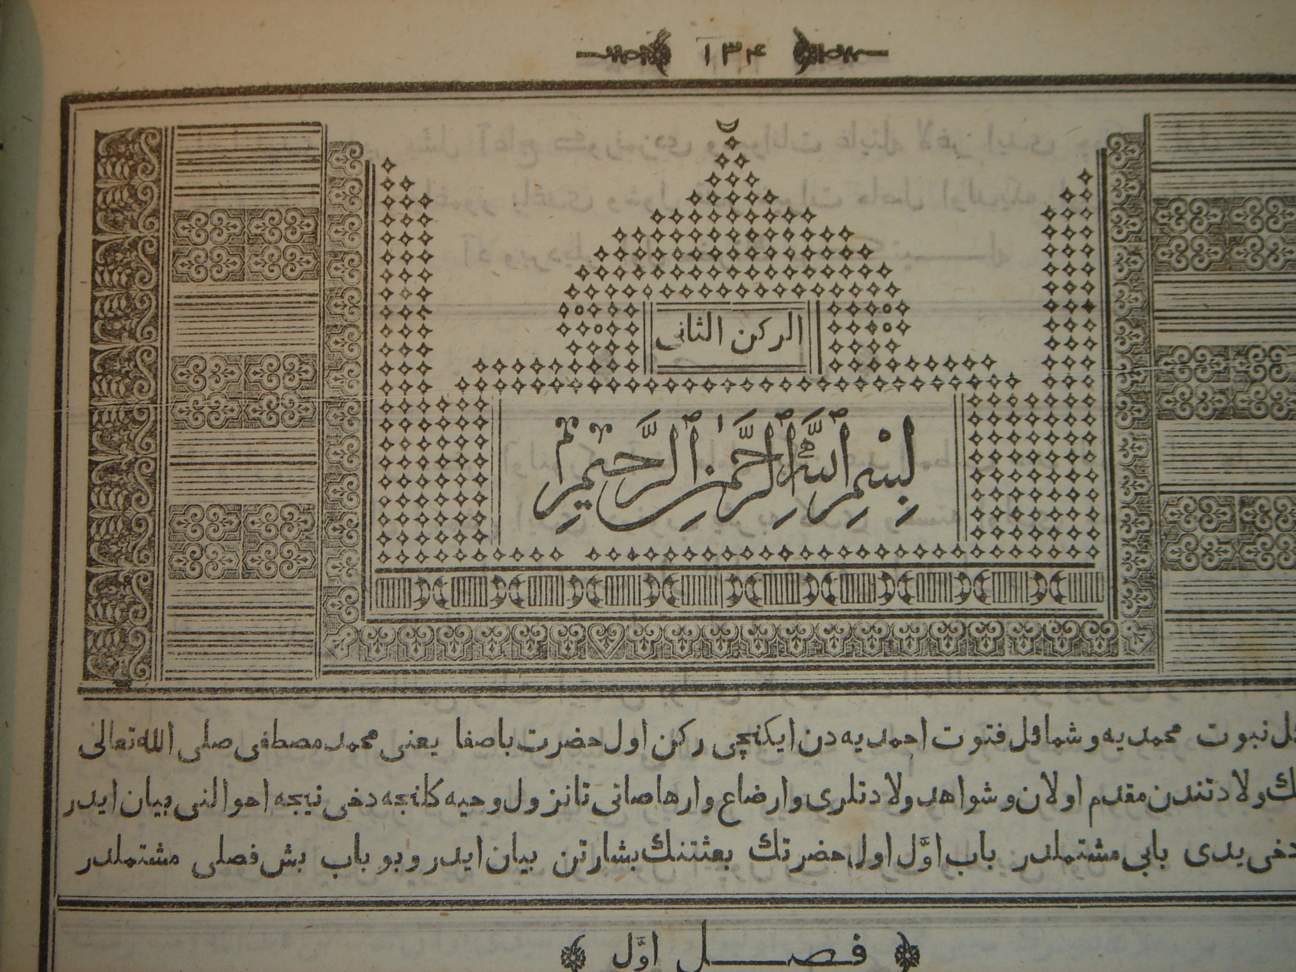 ١٣٤
الركن الثانى
بِسْمِ اللّٰهِ الرَّحْمٰنِ الرَّحِيْمِ
نبوت محمديه و شمائل فتوت احمديه دن ايكنجى ركن اول حضرت باصفا يعنى محمد مصطفى صلى الله تعالى
ولادتندن مقدم اولان و شواهد ولادتلرى و ارضاع و ارهاصاتى تا نزول وحيه كلنجه دخى نيجه احوالنى بيان ايدر
دخى يدى بابى مشتملدر باب اوَّل اول حضرتك بعثتنك بشارتن بيان ايدر و بو باب بش فصلى مشتملدر
فصل اوَّل